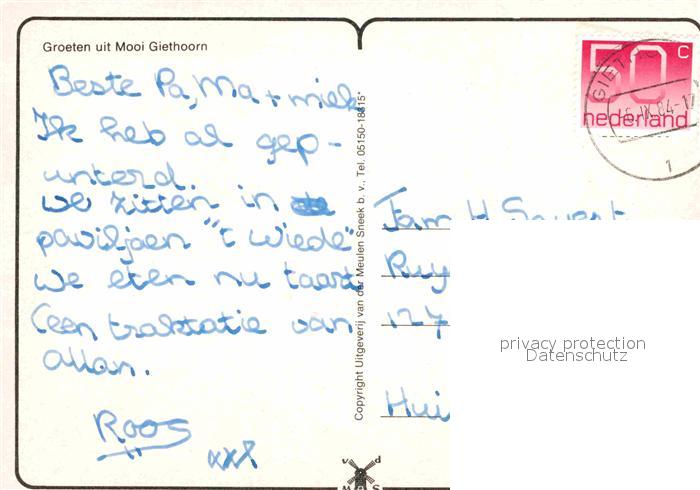 Groeten uit Mooi Giethoorn
Beste Pa, Ma + miek
Ik heb al gep-
unterd.
we zitten in
paviljoen "t Wiede"
we eten nu taart
(een traktatie van
allan.
Roos
xxx
Copyright Uitgeverij van der Meulen Sneek b. v., Tel. 05150-18815*
50 c
nederland
GIETH
1
Fam H
Ruy
127
Hui
privacy protection
Datenschutz
v d
M S